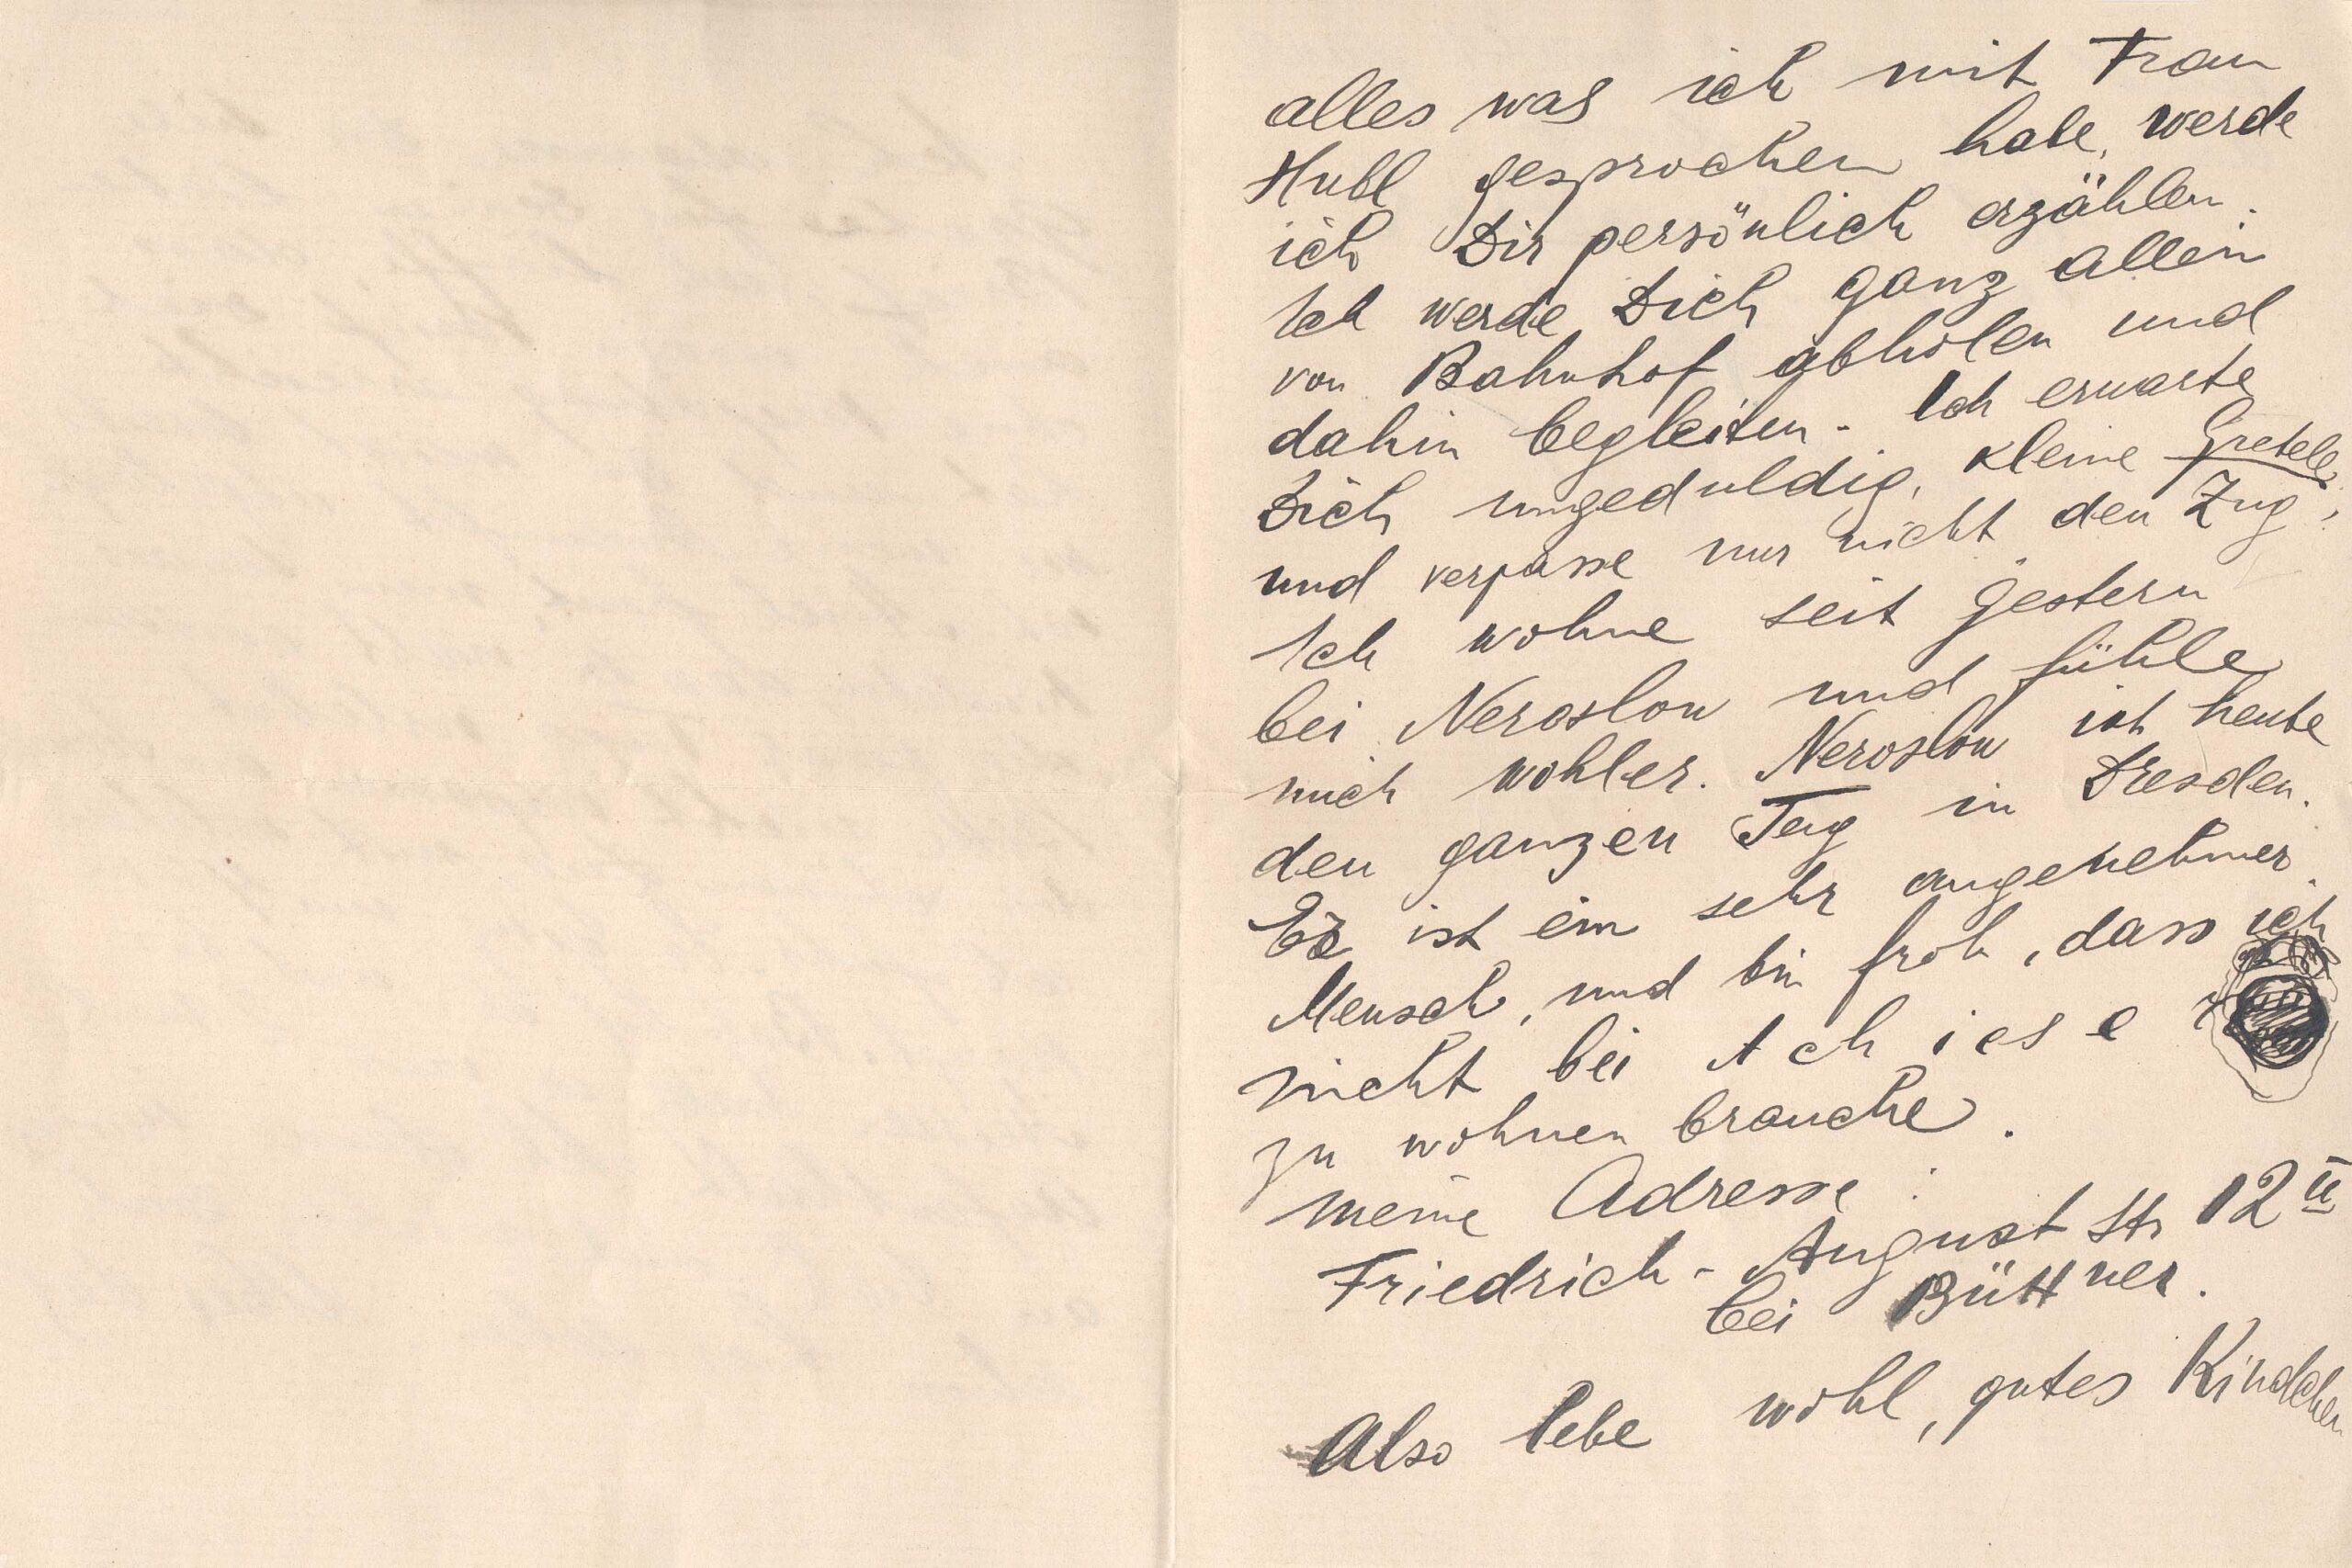 alles was ich mit Frau
Hubl gesprochen habe, werde
ich Dir persönlich erzählen.
Ich werde Dich ganz allein
von Bahnhof abholen und
dahin begleiten. Ich erwarte
Dich ungeduldig, kleine Gretele,
und verpasse nur nicht den Zug,
Ich wohne seit gestern
bei Neroslow und fühle
mich wohler. Neroslow ist heute
den ganzen Tag in Dresden.
Es ist ein sehr angenehmer
Mensch, und bin froh, dass ich
nicht bei
zu wohnen brauche.
meine Adresse:
Friedrich-August Str 12 II
bei Büttner.
Also lebe wohl, gutes Kindchen